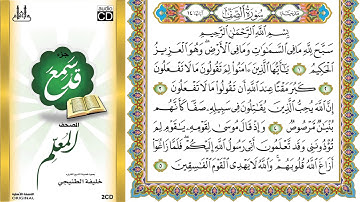 audio
CD
جزء
قد سمع
المصحف
المعلم
خليفة الطنيجي
ORIGINAL
2CD
سُورَةُ الصَّفِّ
بِسْمِ اللَّهِ الرَّحْمَٰنِ الرَّحِيمِ
سَبَّحَ لِلَّهِ مَا فِي السَّمَٰوَٰتِ وَمَا فِي الْأَرْضِ وَهُوَ الْعَزِيزُ
الْحَكِيمُ ١ يَٰٓأَيُّهَا الَّذِينَ ءَامَنُوا لِمَ تَقُولُونَ مَا لَا تَفْعَلُونَ
٢ كَبُرَ مَقْتًا عِندَ اللَّهِ أَن تَقُولُوا مَا لَا تَفْعَلُونَ ٣
إِنَّ اللَّهَ يُحِبُّ الَّذِينَ يُقَٰتِلُونَ فِي سَبِيلِهِ صَفًّا كَأَنَّهُم
بُنْيَٰنٌ مَّرْصُوصٌ ٤ وَإِذْ قَالَ مُوسَىٰ لِقَوْمِهِ يَٰقَوْمِ لِمَ
تُؤْذُونَنِي وَقَد تَّعْلَمُونَ أَنِّي رَسُولُ اللَّهِ إِلَيْكُمْ فَلَمَّا زَاغُوا
أَزَاغَ اللَّهُ قُلُوبَهُمْ وَاللَّهُ لَا يَهْدِي الْقَوْمَ الْفَٰسِقِينَ ٥